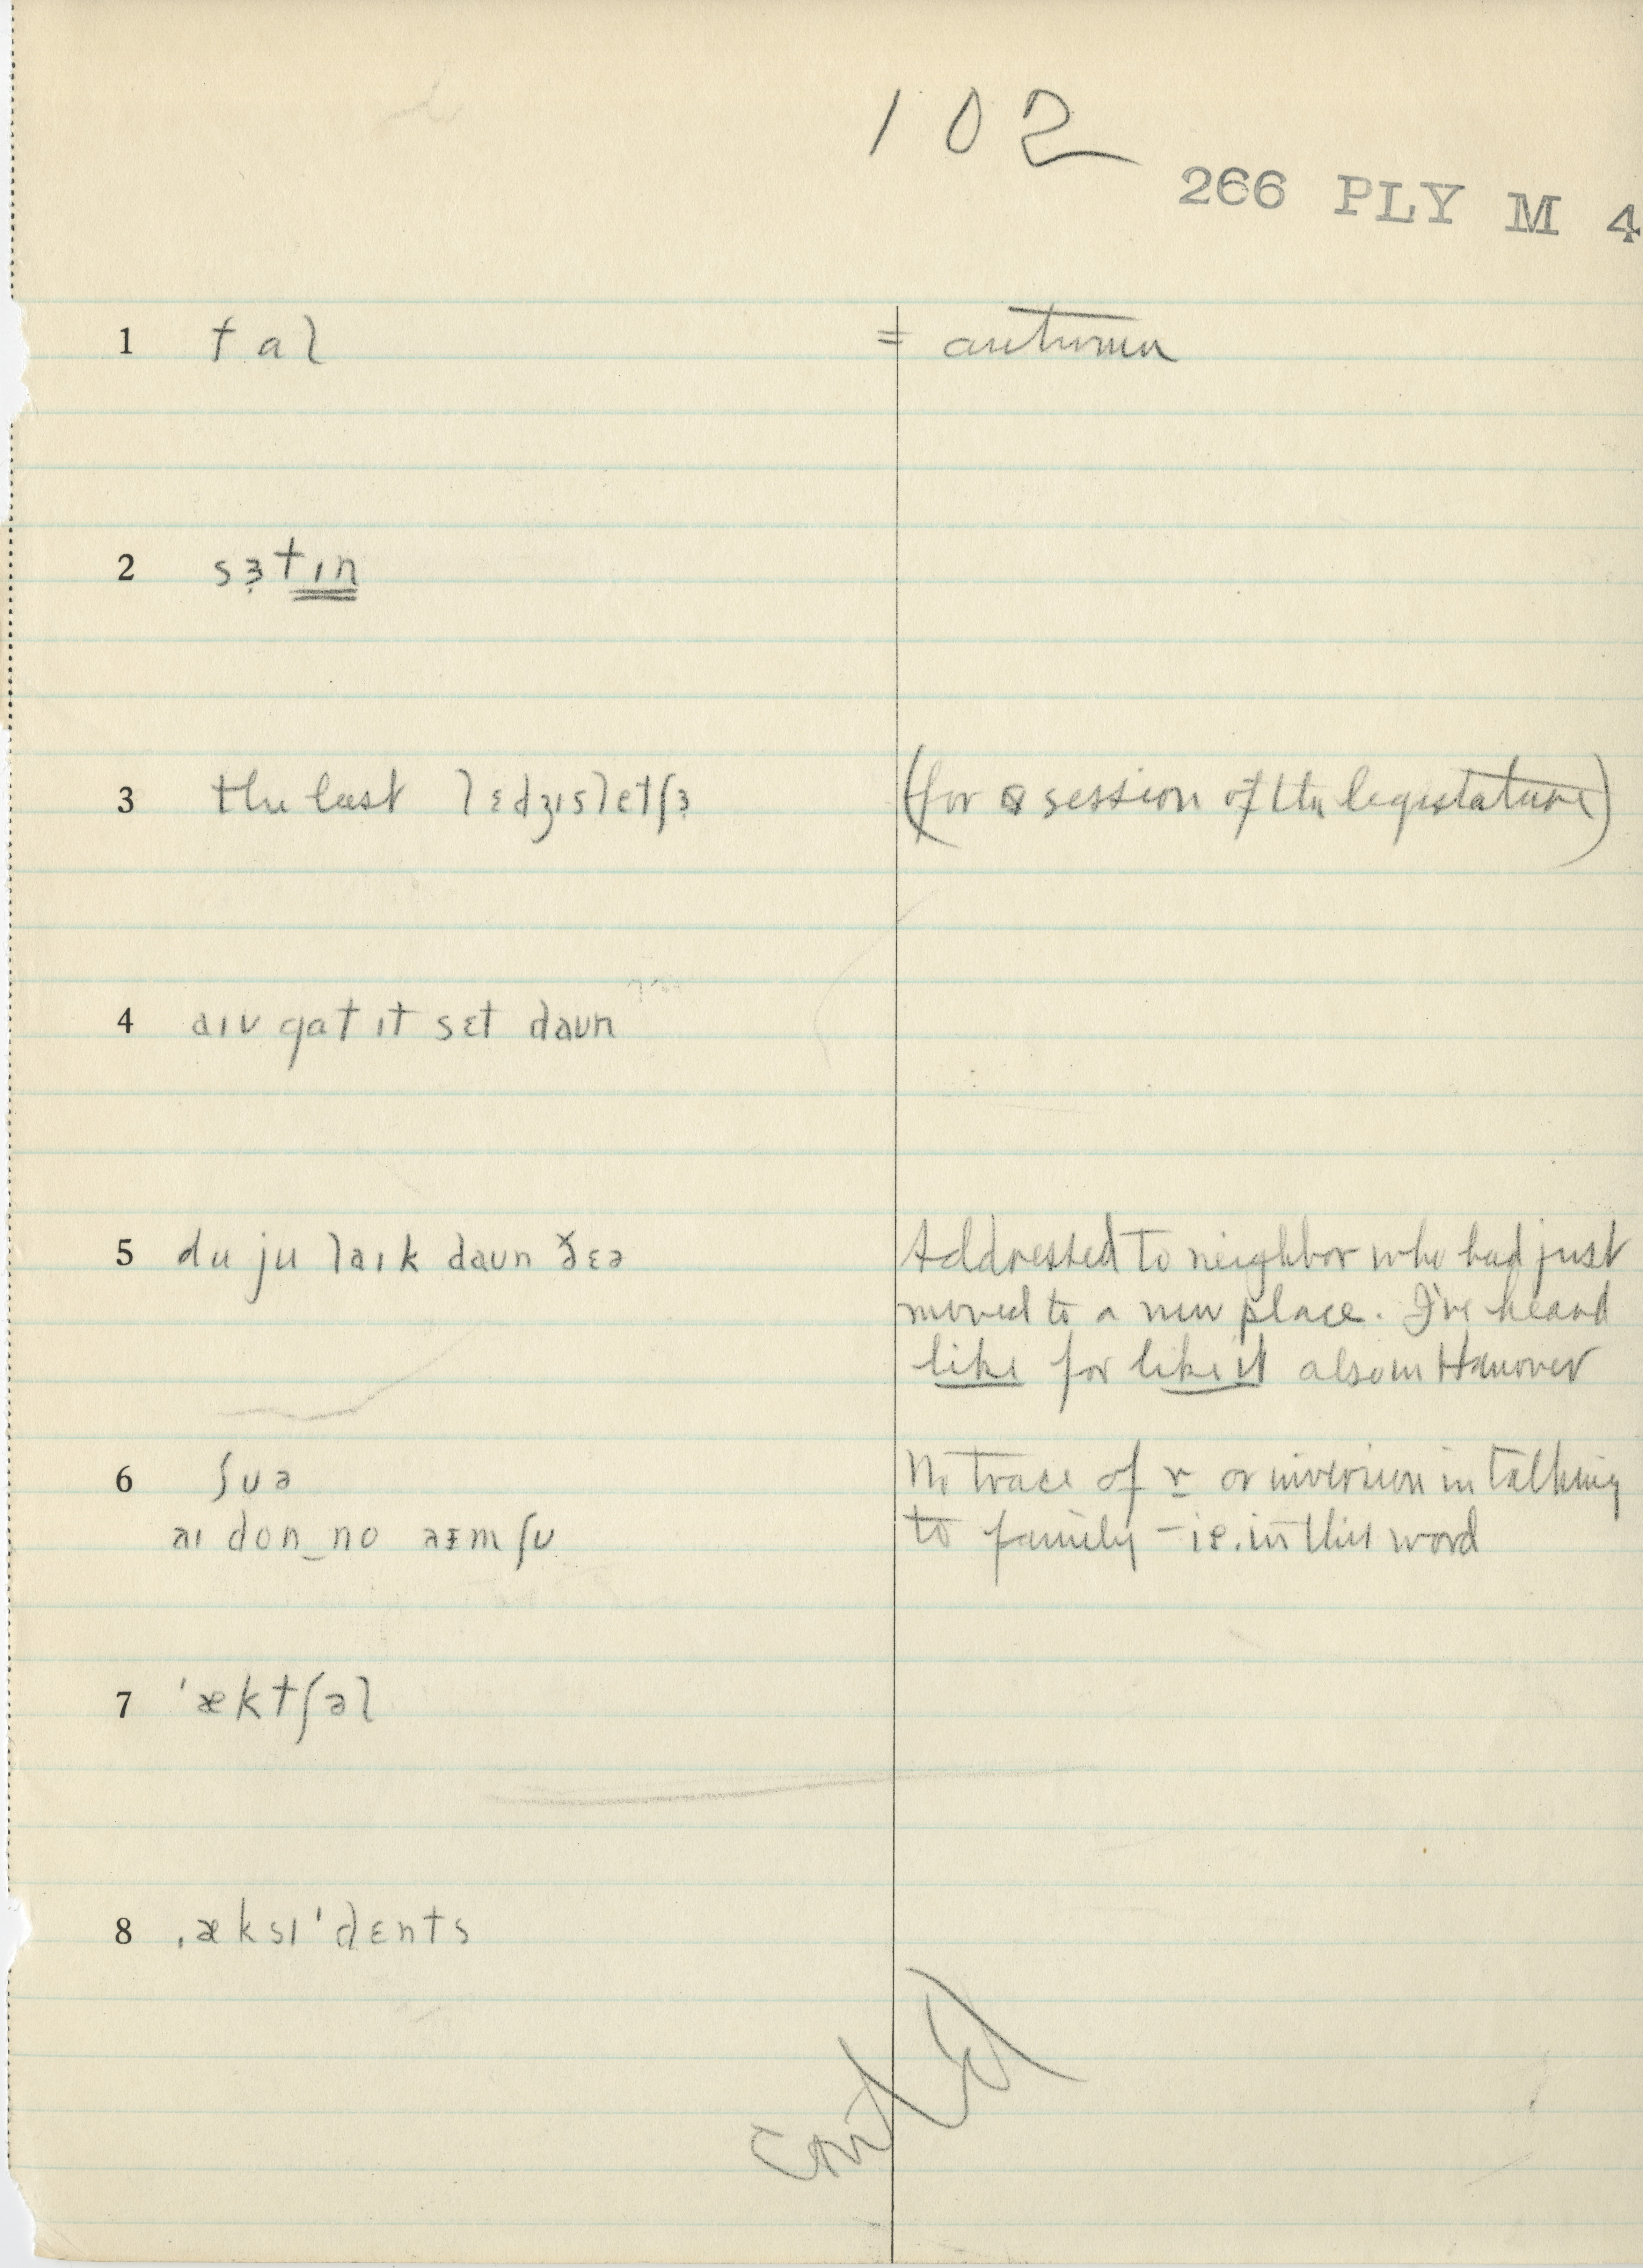 102
266 PLY M 4
1 fal = autumn
2 sɜtɪn
3 the last lɛdʒɪsletʃɜ (for a session of the legislature)
4 aɪv gat ɪt sɛt daun
5 du ju laɪk daun ðɛə Addressed to neighbor who had just
moved to a new place. I've heard
like for like it also in Hanover
6 ʃuə No trace of r or inversion in talking
aɪ don_no əɪm ʃu to family – i.e. in this word
7 'æktʃəl
8 ˌæksɪ'dɛnts
cont'd